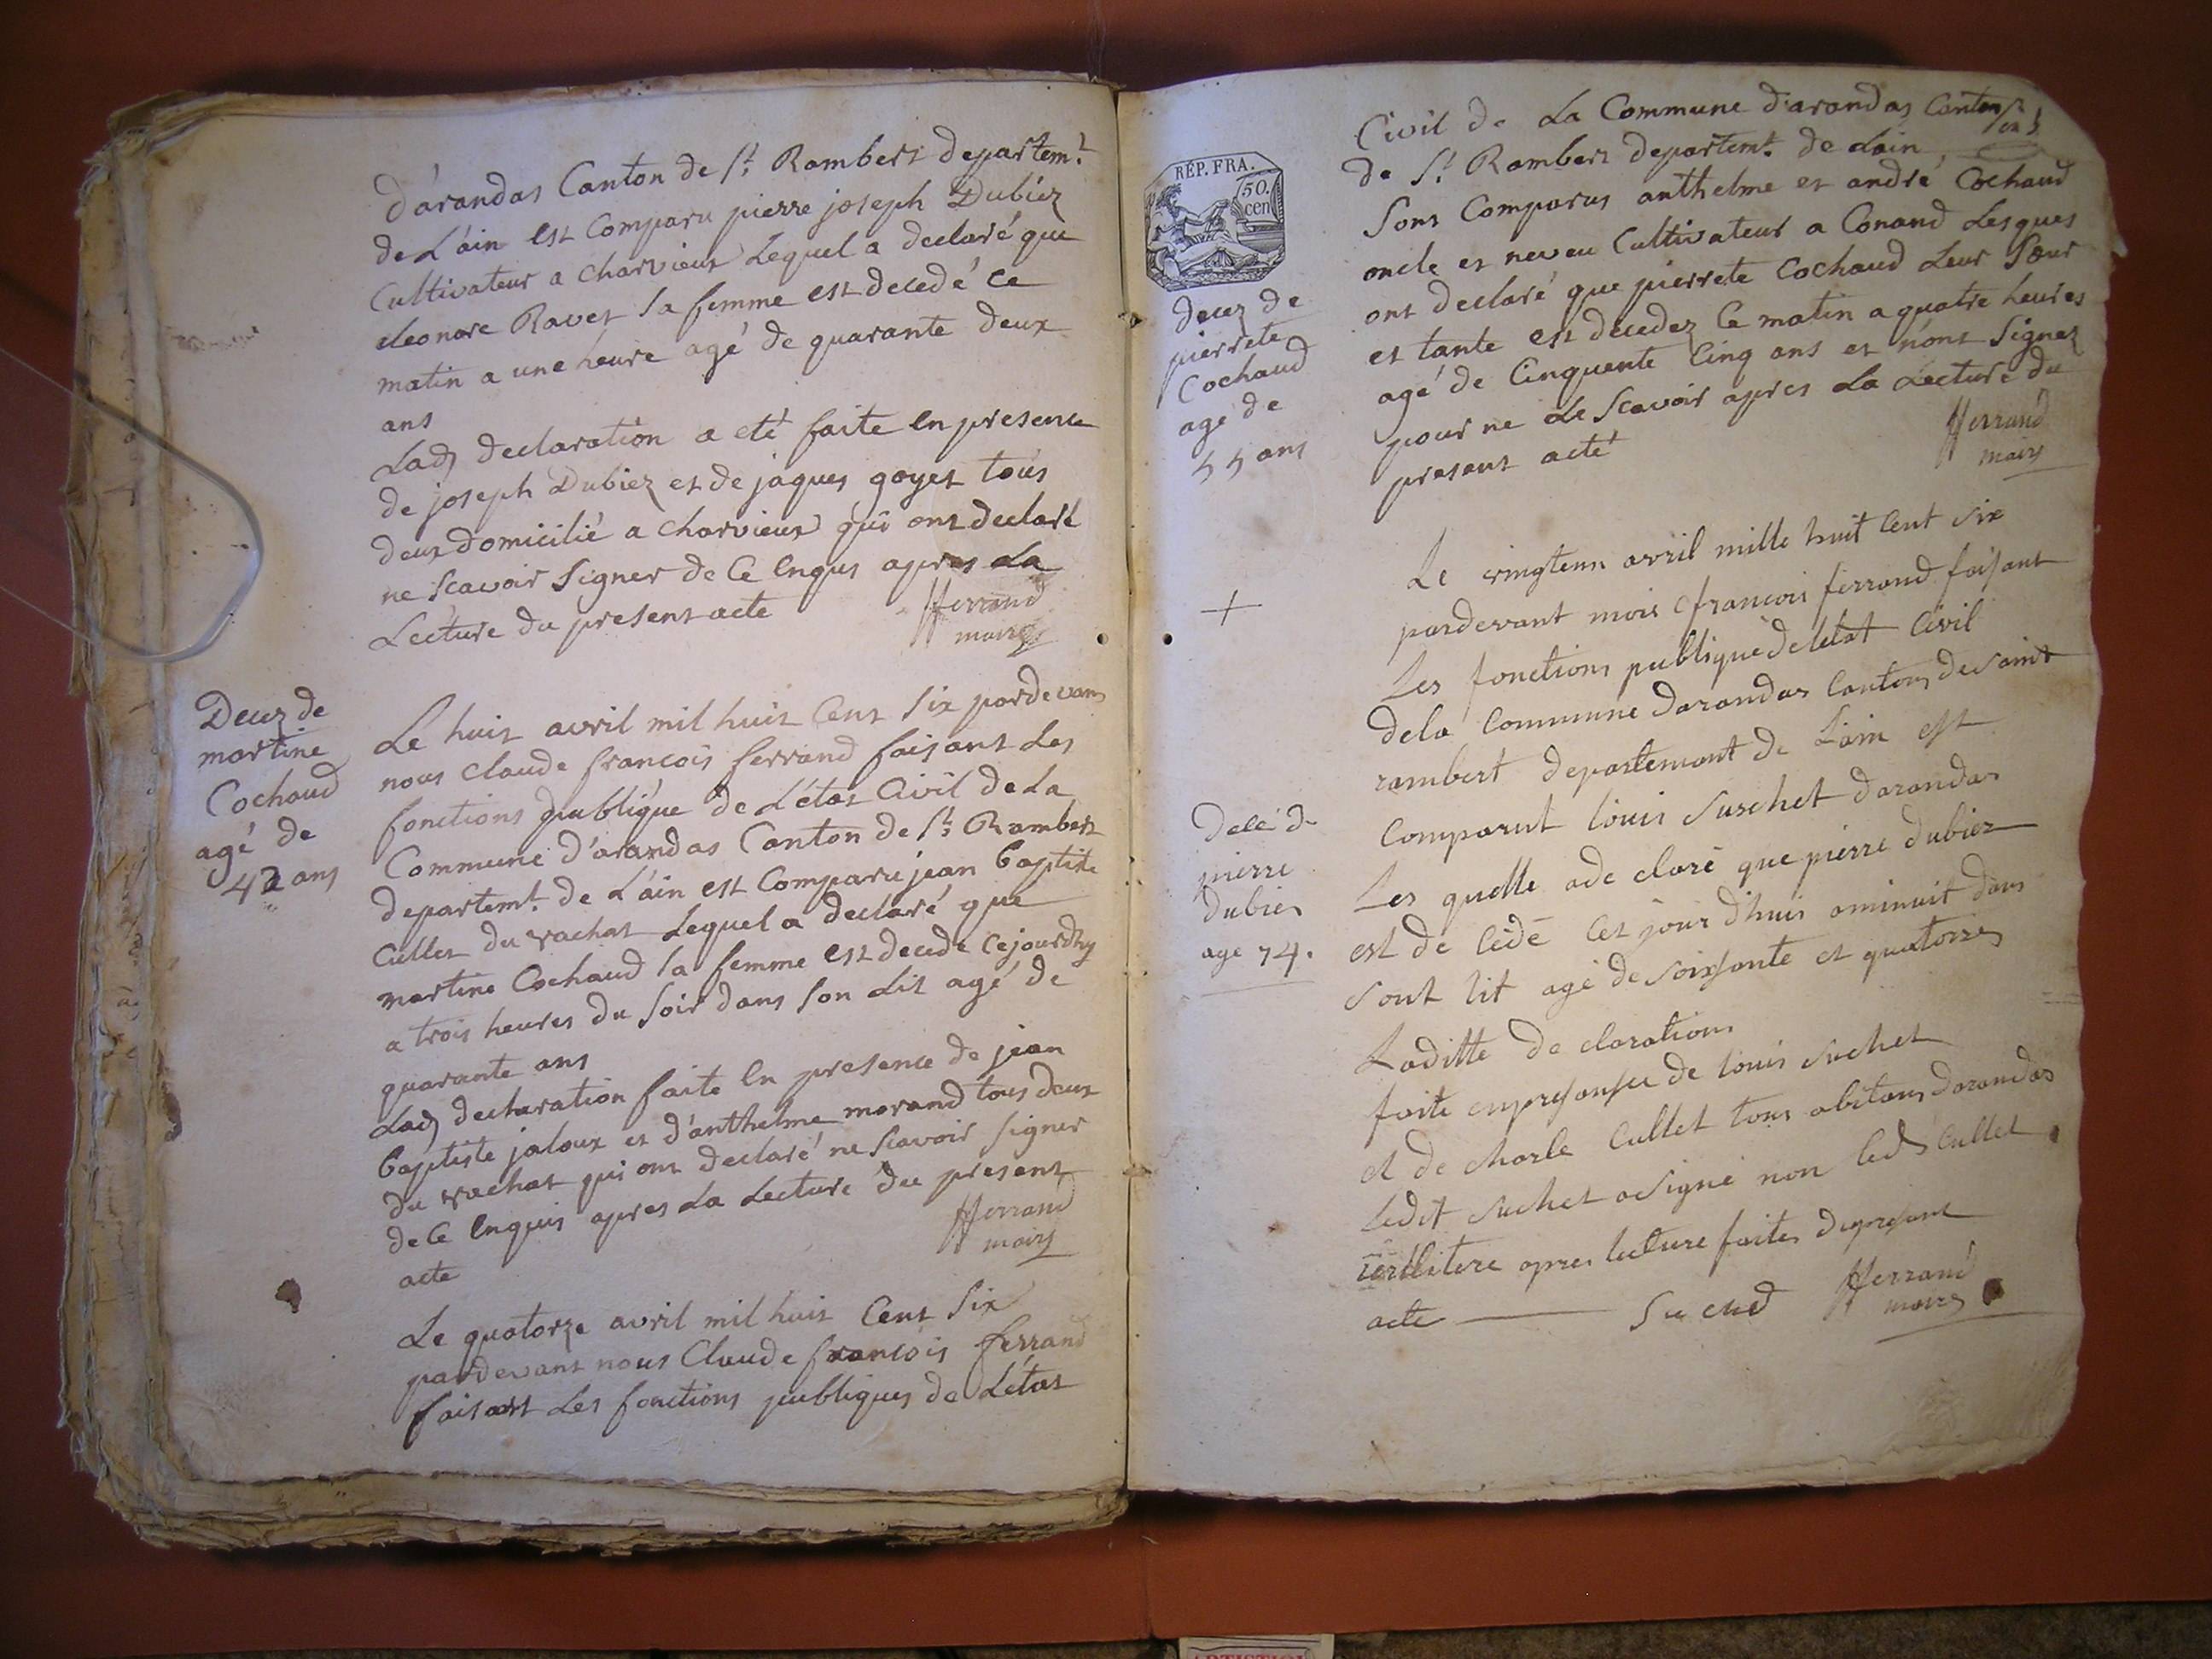 d'arandas Canton de St. Rambert departemt.
de L'ain est Comparu pierre joseph Dubiez
Cultivateur a Charvieux Lequel a declaré que
eleonore Ravet sa femme est decedé ce
matin a une heure agé de quarante deux
ans
Lad. declaration a eté faite en presence
de joseph Dubiez et de jaques goyet tous
deux domicilié a Charvieux qui ont declaré
ne Scavoir Signer de Ce enquis apres La
Lecture du present acte
fferrand
maire
Decez de
martine
Cochaud
agé de
42 ans
Le huit avril mil huit Cent Six pardevant
nous Claude francois ferrand faisant Les
fonctions publique de L'état Civil de La
Commune d'arandas Canton de St. Rambert
departemt. de L'ain est Comparu jean baptiste
Cullet du vachat Lequel a declaré que
martine Cochaud sa femme est decede cejourdhy
a trois heures du Soir dans Son Lit agé de
quarante ans
Lad. declaration faite en presence de jean
baptiste jaloux et d'anthelme morand tous deux
du vachat qui ont declaré ne Scavoir Signer
de Ce enquis apres La Lecture du present
acte
fferrand
maire
Le quatorze avril mil huit Cent Six
pardevant nous Claude francois ferrand
faisant Les fonctions publiques de L'état
RÉP. FRA.
50.
cen
Civil de La Commune d'arandas Canton
de St. Rambert departemt. de Lain
Sont Comparus anthelme et andré Cochaud
oncle et neveu Cultivateur a Conand Lesques
ont declaré que pierrete Cochaud Leur Sœur
et tante est decedez Ce matin a quatre heures
agé de Cinquente Cinq ans et n'ont Signez
pour ne Le Scavoir apres La Lecture du
present acte
fferrand
maire
decez de
pierrete
Cochaud
agé de
55 ans
+
Le vingtenn avril mille huit Cent six
pardevant mois francois ferrand faisant
Les fonctions publique deletat Civil
dela Commune darandas Canton de saint
rambert departemant de Lain est
Comparut louis Suschet darandas
Les quelle ade claré que pierre dubiez
est de Cédé Cet jour d'huis aminuit dans
sont lit agé de soixsante et quatorze
Laditte de claration
faite enpresansce de louis suchet
et de charle Cullet tous abitans darandas
Ledit suchet asigné non led. Cullet
apres lecture faites depresant
acte
Suched
fferrand
maire
Décé de
pierre
dubiez
age 74.